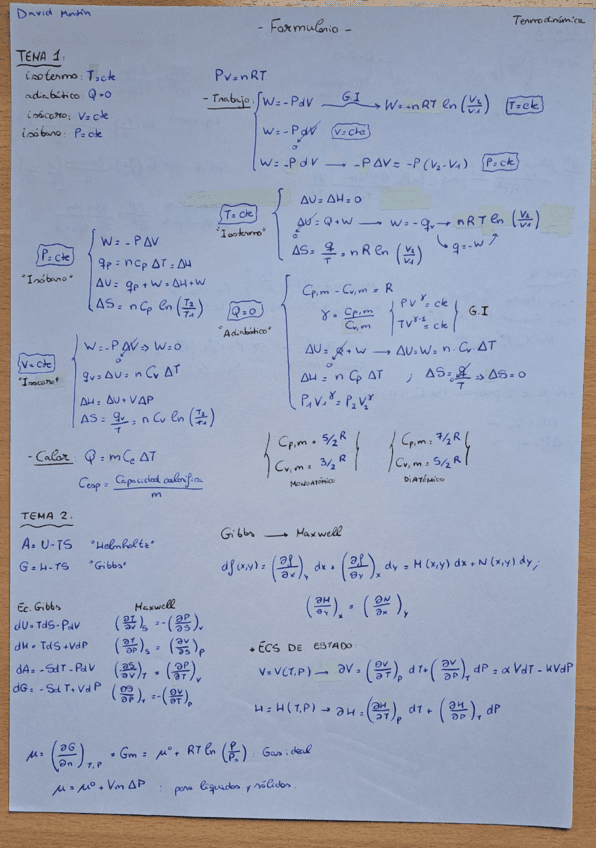 David Martín
- Formulario -
Termodinámica
TEMA 1:
isotermo: T=cte
adiabático: Q=0
isócoro: V=cte
isóbaro: P=cte
PV=nRT
- Trabajo: W=-PdV G.I → W=-nRT ln (V2/V1) T=cte
W=-PdV 0 V=cte
W=-PdV → -PΔV=-P(V2-V1) P=cte
T=cte "Isotermo"
ΔU=ΔH=0
ΔU=Q+W → W=-qv → nRT ln (V2/V1)
0
q=-W
ΔS=q/T=nR ln (V2/V1)
P=cte "Isóbaro"
W=-PΔV
qp=nCpΔT=ΔH
ΔU=qp+W=ΔH+W
ΔS=nCp ln (T2/T1)
Q=0 "Adiabático"
Cp,m - Cv,m = R
γ=Cp,m/Cv,m PV^γ=cte TV^γ-1=cte G.I
ΔU=Q+W → ΔU=W=n·Cv·ΔT
ΔH=nCpΔT ; ΔS=q/T ⇒ ΔS=0
P1V1^γ=P2V2^γ
V=cte "Isócoro"
W=-PΔV ⇒ W=0
0
qv=ΔU=nCvΔT
ΔH=ΔU+VΔP
ΔS=qv/T=nCv ln (T2/T1)
- Calor: Q=mCeΔT
Cesp=Capacidad calorífica/m
Cp,m=5/2R
Cv,m=3/2R
MONOATÓMICO
Cp,m=7/2R
Cv,m=5/2R
DIATÓMICO
TEMA 2:
A=U-TS "Helmholtz"
G=H-TS "Gibbs"
Gibbs → Maxwell
df(x,y)=(∂f/∂x)y dx+(∂f/∂y)x dy=M(x,y)dx+N(x,y)dy;
(∂M/∂y)x=(∂N/∂x)y
Ec. Gibbs Maxwell
dU=TdS-PdV (∂T/∂V)S=-(∂P/∂S)V
dH=TdS+VdP (∂T/∂P)S=(∂V/∂S)P
dA=-SdT-PdV (∂S/∂V)T=(∂P/∂T)V
dG=-SdT+VdP (∂S/∂P)T=-(∂V/∂T)P
* ECS DE ESTADO:
V=V(T,P) → ∂V=(∂V/∂T)P dT+(∂V/∂P)T dP=αVdT-KVdP
H=H(T,P) → ∂H=(∂H/∂T)P dT+(∂H/∂P)T dP
μ=(∂G/∂n)T,P=Gm=μ°+RT ln (P/P0): Gas ideal
μ=μ°+VmΔP : para líquidos y sólidos.